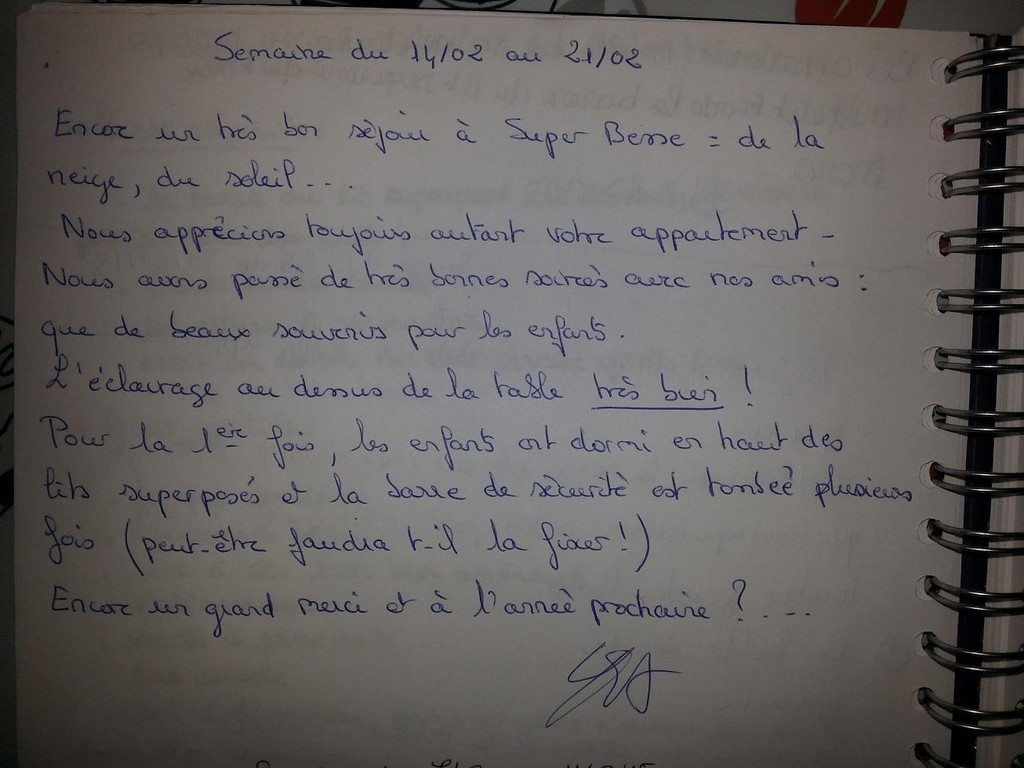 Semaine du 14/02 au 21/02
Encore un très bon séjour à Super Besse = de la
neige, du soleil....
Nous apprécions toujours autant votre appartement -
Nous avons passé de très bonnes soirées avec nos amis :
que de beaux souvenirs pour les enfants.
L'éclairage au dessus de la table très bien !
Pour la 1ère fois, les enfants ont dormi en haut des
lits superposés et la barre de sécurité est tombée plusieurs
fois (peut-être faudra t-il la fixer !)
Encore un grand merci et à l'année prochaine ?...